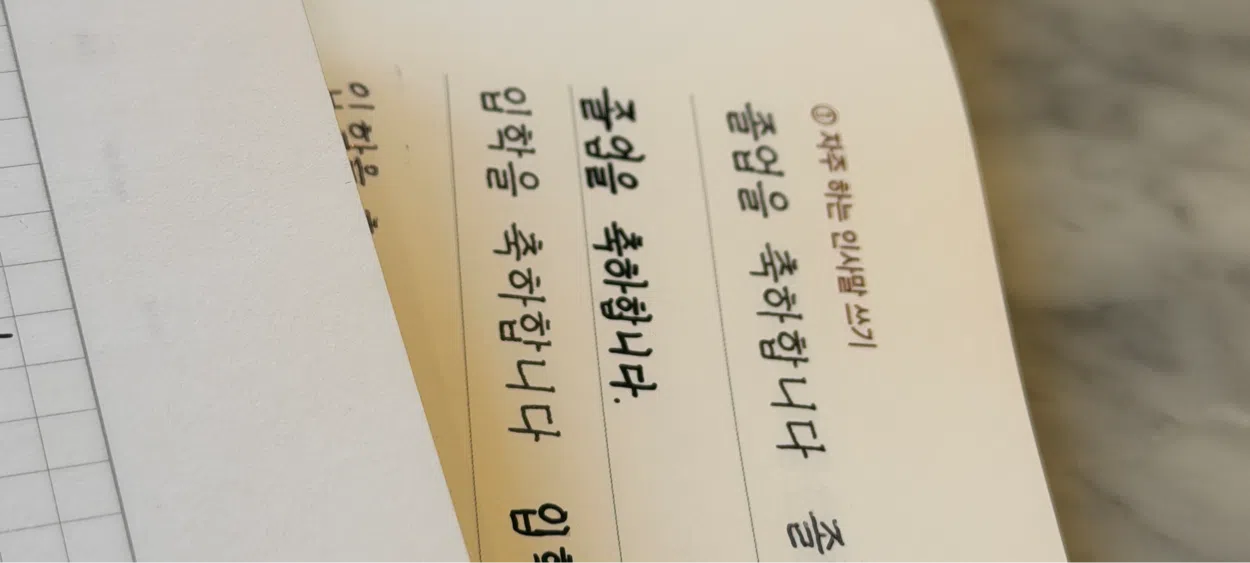 ① 자주 하는 인사말 쓰기
졸업을 축하합니다 졸
졸업을 축하합니다.
입학을 축하합니다 입
입학을